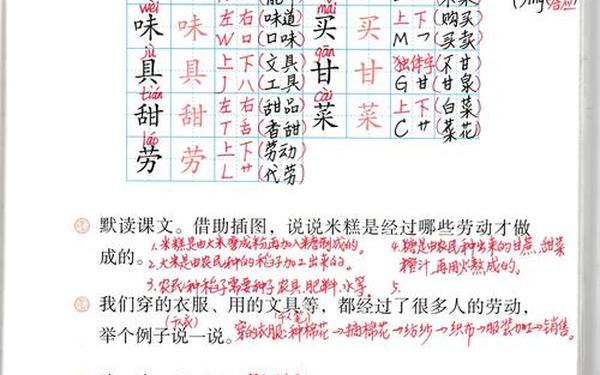 wèi mǎi
味 味 左右(味道) 买 买 上下(购买)
W 口(口味) M 乛(买卖)
jù gān
具 具 上下(文具) 甘 甘 独体字(不甘)
J 八(工具) G 甘(甘泉)
tián cài
甜 甜 左右(甜品) 菜 菜 上下(白菜)
T 舌(香甜) C 艹(菜花)
láo
劳 劳 上下(劳动)
L 艹(代劳)
默读课文。借助插图，说说米糕是经过哪些劳动才做
成的。
1.米糕是由大米磨成粉再加入糖制成的。
2.大米是由农民种的稻子加工出来的。
3.农民种稻子需要种子、农具、肥料、水等。
4.糖是由农民种出来的甘蔗、甜菜
榨汁,再用火熬成的。
5.
我们穿的衣服、用的文具等，都经过了很多人的劳动，
举个例子说一说。
穿的衣服:种棉花→摘棉花→纺纱→织布→服装加工→销售。